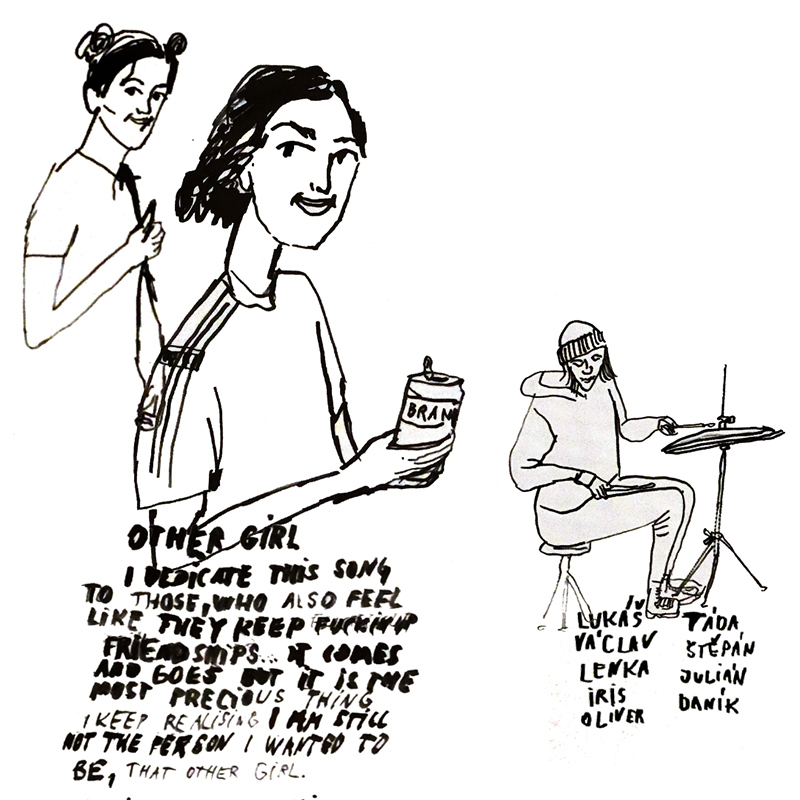 BRAN
OTHER GIRL
I DEDICATE THIS SONG
TO THOSE, WHO ALSO FEEL
LIKE THEY KEEP FUCKIN UP
FRIENDSHIPS... IT COMES
AND GOES BUT IT IS THE
MOST PRECIOUS THING
I KEEP REALISING I AM STILL
NOT THE PERSON I WANTED TO
BE, THAT OTHER GIRL.
LUKÁŠ
VÁCLAV
LENKA
IRIS
OLIVER
TÁDA
ŠTĚPÁN
JULIÁN
DANÍK